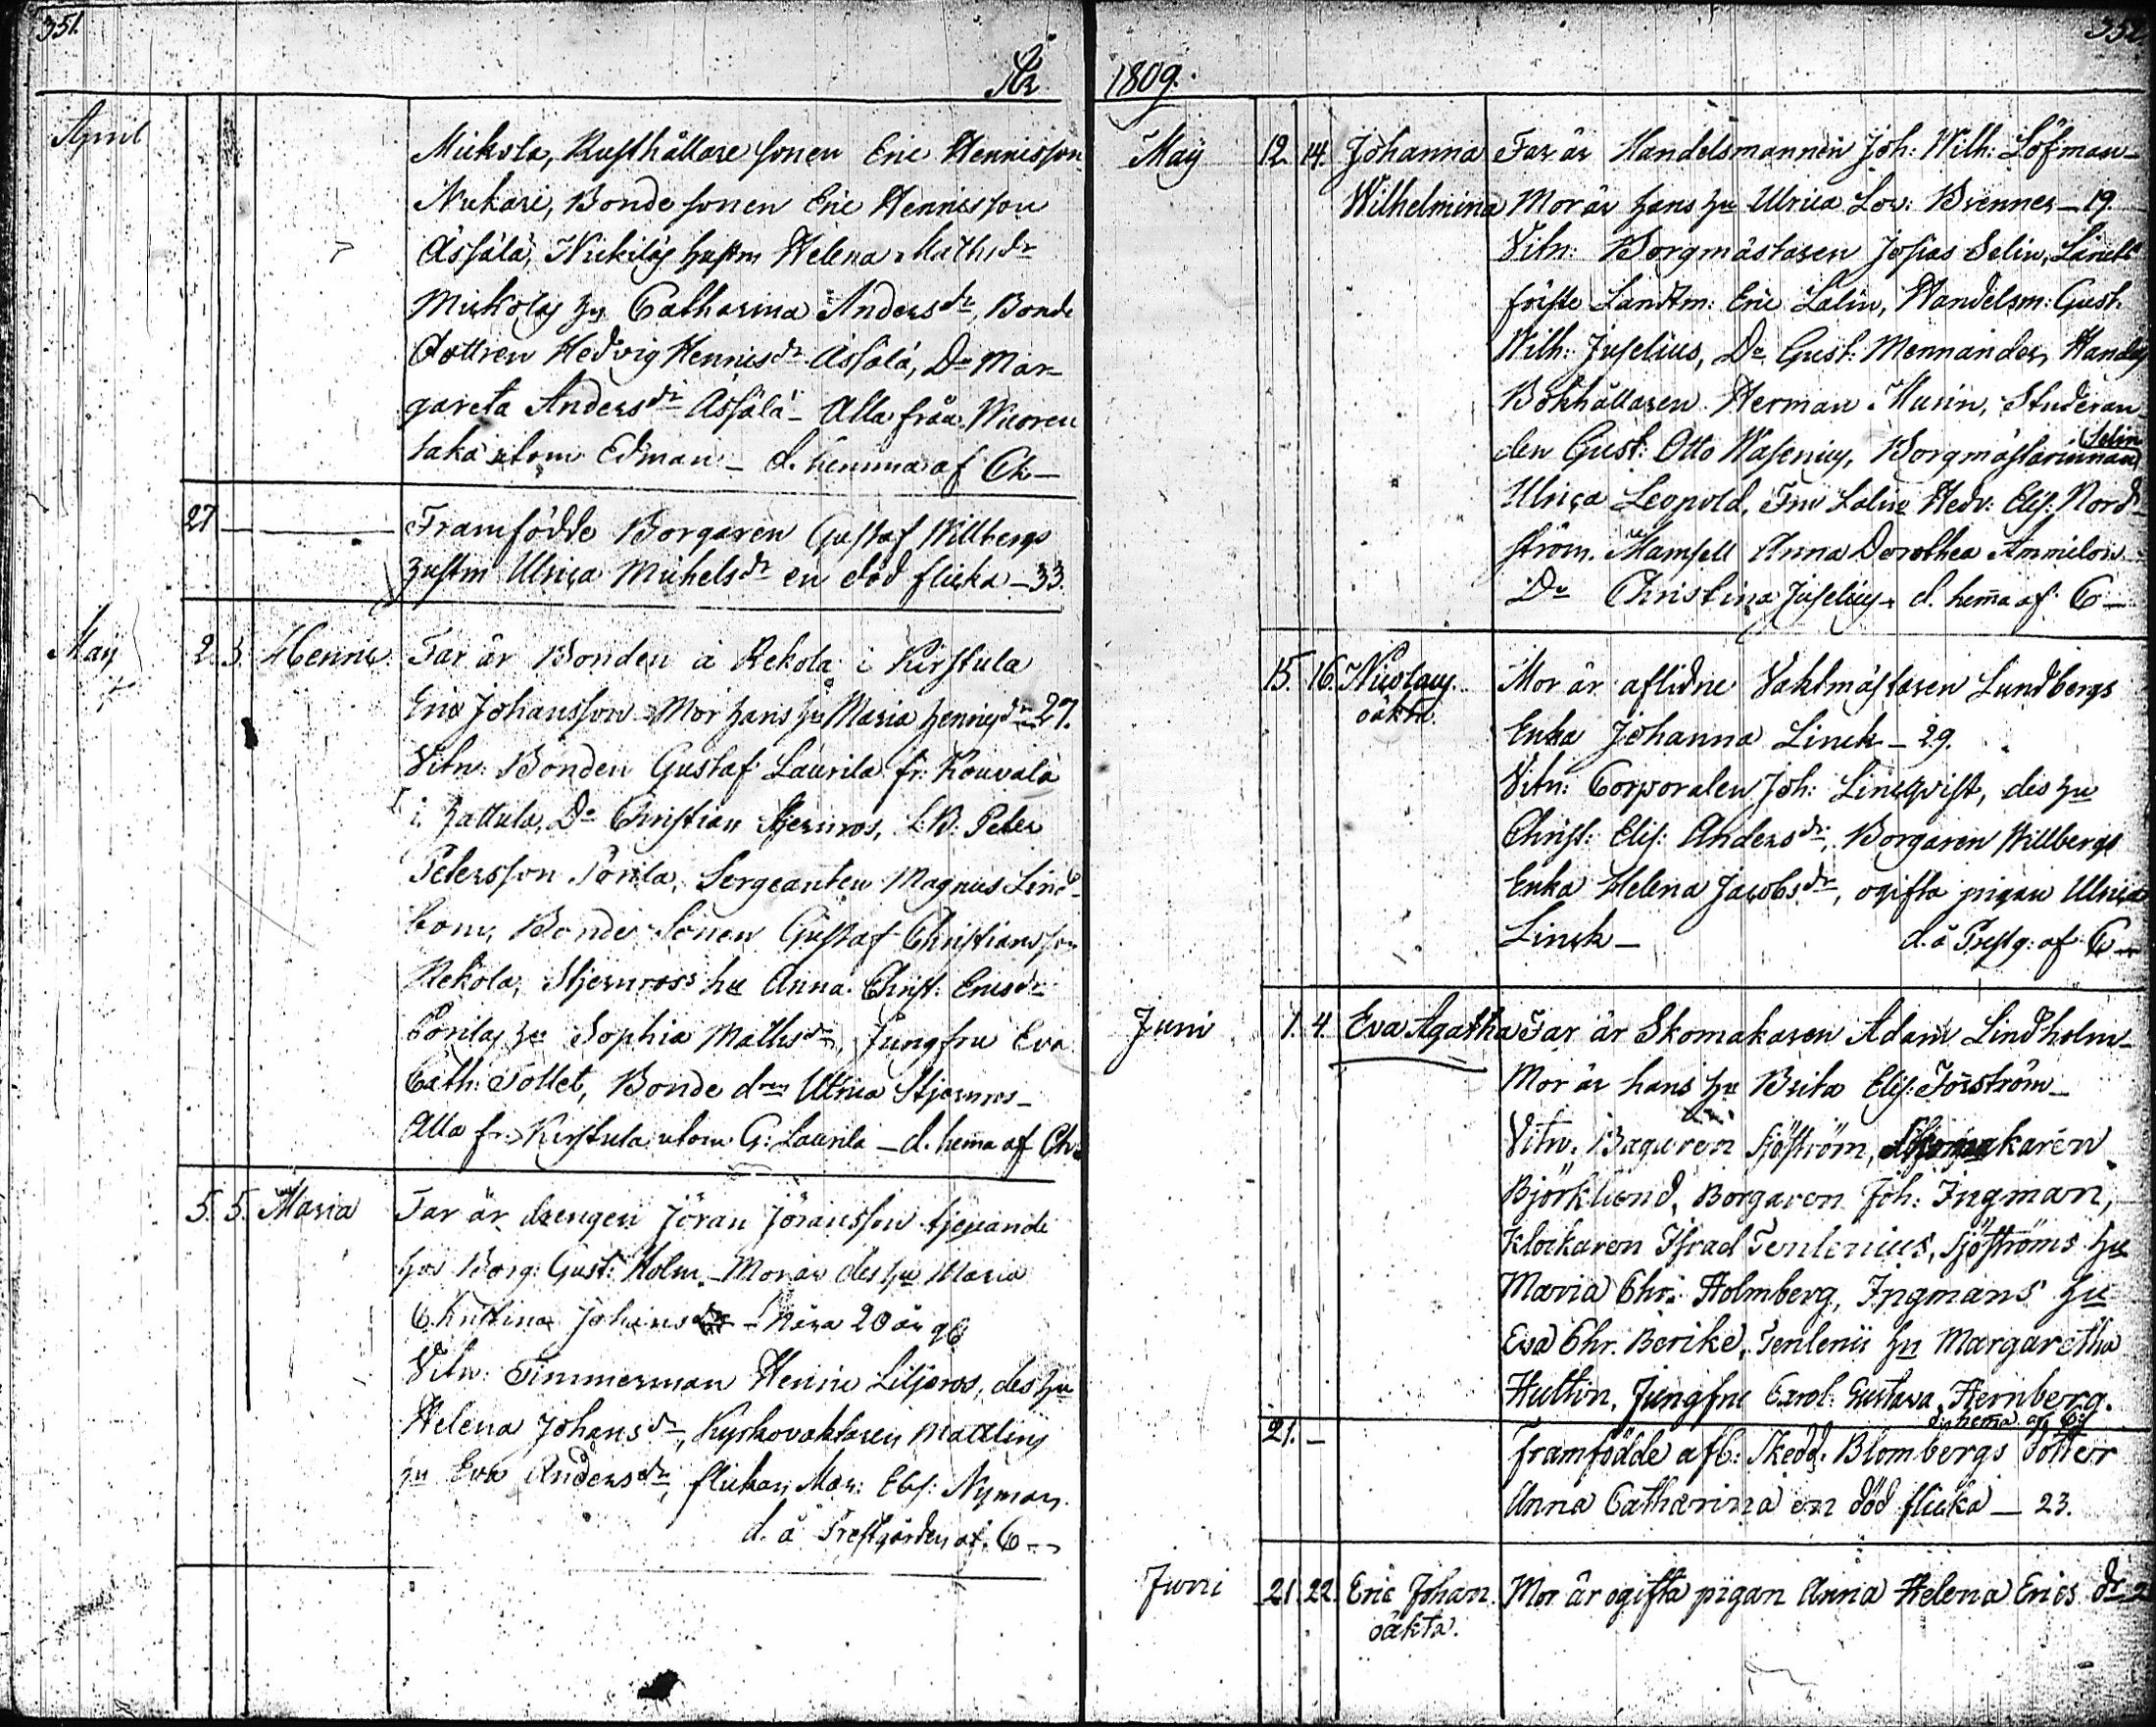 351.
År
April
Mickola, Rusthållare sonen Eric Hennisson
Nukari, Bonde sonen Eric Hennisson
Åssälä, hustru Helena Mathsdr
Mickolas hu Catharina Andersdr, Bonde
dottren Hedvig Hennisdr Åssälä, Do Mar-
gareta Andersdr Åssälä – Alla från Wuoren
taka utom Edman – d. hemma af Ch –
27 – Framfödde Borgaren Gustaf Willbergs
hustru Ulrica Michelsdr en död flicka – 33.
May 2. 3. Henric Far är Bonden å Rekola i Kirstula
Eric Johansson – Mor hans hu Maria Hennigsdr – 27.
Vitn: Bonden Gustaf Laurila fr: Kouvala
i Hattula, Do Christian Stjernros, Peter
Petersson Porila, Sergeanten Magnus Lind-
bom, Bonde Sonen Gustaf Christiansson
Rekola, Stjernross hu Anna Christ: Ericsdr
Porilas hu Sophia Mathsdr, Jungfru Eva
Cath: Tollet, Bonde Ulrica Stjernros –
Alla fr: Kirstula utom G: Laurila – d. hem̄a af Ch.
5. 5. Maria Far är drengen Jöran Jöransson tjenande
hos Borg: Gust: Holm. – Mor är des hu Maria
Christina Johansdr – nära 20 år
Vitn: Timmerman Henric Liljeros, des hu
Helena Johansdr, Kyrkovaktaren Mattlins
hu Eva Andersdr, flickan Mar: Elis: Nyman
d. å Prestgården af C –
352.
1809.
May 12. 14. Johanna Far är Handelsmannen Joh: Wilh: Löfman –
Wilhelmina Mor är hans hu Ulrica Lov: Brenner – 19.
Vitn: Borgmästaren Josias Selin,
förste Landtm: Eric Lalin, Handelsm: Gust.
Wilh: Juselius, Do Gust: Mennander, Handels
Bokhållaren Herman Husin, Studeran-
den Gust: Otto Wasenius, Borgmästarinnan (Selin
Ulrica Leopold, Fru Lalin Hedv: Elis: Nord-
ström, Mamsell Anna Dorothea
Do Christina Juselius – d. hem̄a af C –
15. 16. Nicolaus Mor är aflidne Vaktmästaren Lundbergs
oäkta. Enka Johanna Linck – 29.
Vitn: Corporalen Joh: Lindqvist, des hu
Christ: Elis: Andersdr, Borgaren Willbergs
Enka Helena Jacobsdr, ogifta pigan Ulrica
Linck – d. å Prestg: af C –
Juni 1. 4. Eva Agatha Far är Skomakaren Adam Lindholm –
Mor är hans hu Brita Elis: Forström –
Vitn: Bagaren Sjöström, Skomakaren
Björklund, Borgaren Joh: Ingman,
Klockaren Israel Tenlenius, Sjöströms hu
Maria Chr: Holmberg, Ingmans hu
Eva Chr. Berike, Tenlenii hu Margaretha
Hultin, Jungfru Carol: Gustava Hernberg.
d: hem̄a af C:
21. – Framfödde afl: Blombergs Dotter
Anna Catharina en död flicka – 23.
Juni 21. 22. Eric Johan. Mor är ogifta pigan Anna Helena Erics dr
oäkta.